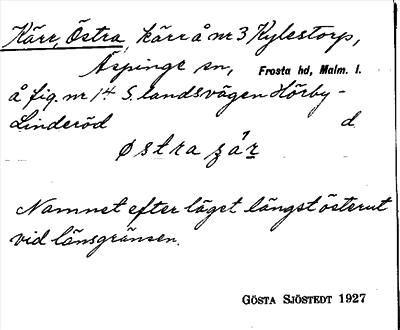 Kärr, Östra, kärr å nr 3 Kylestorp,
Äspinge sn, Frosta hd, Malm. l.
å fig. nr 14 S. landsvägen Hörby-
Linderöd d.
østra
Namnet efter läget längst österut
vid länsgränsen.
GÖSTA SJÖSTEDT 1927